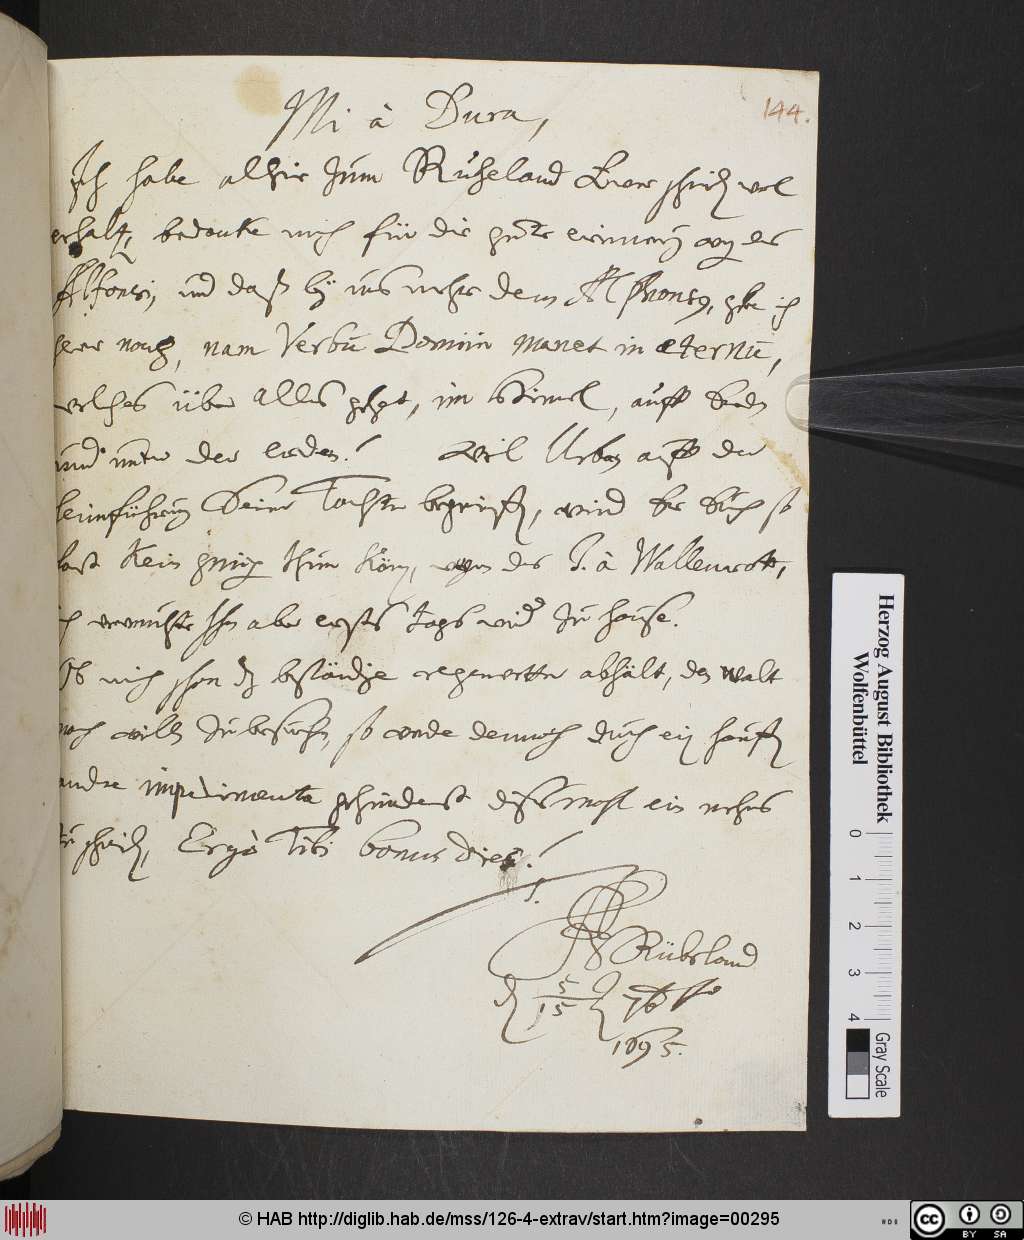 144.
Mi à Dura,
Ich habe alhie zum Rüheland Ewer schreiben wol
erhalten, bedancke mich für die gute erinnerung wegen des
Alfonsi, und daß bey uns mehr dem Alphonso,
nam Verbū Domini manet in æternū,
welches über alles gehet, im Himel, auff Erden
und unter der erden! Weil Urban auff der
Heimführung Seiner Tochter begriffen, wird Er Euch so
fast kein gnüge thun können, wegen des J. à Wallenrott,
ich vermuhte Ihn aber erstes tags wieder zu hause.
Ob mich schon das beständige regenwetter abhält, den walt
nach willen zu besuchen, so werde dennoch durch ein hauffen
andre impedimenta gehindert dißmahl ein mehres
zu schreiben, Ergò Tibi bonus dies!
Rübeland
d. 5/15
1695.
Herzog August Bibliothek
Wolfenbüttel
0 1 2 3 4
Gray Scale
© HAB http://diglib.hab.de/mss/126-4-extrav/start.htm?image=00295
cc BY SA